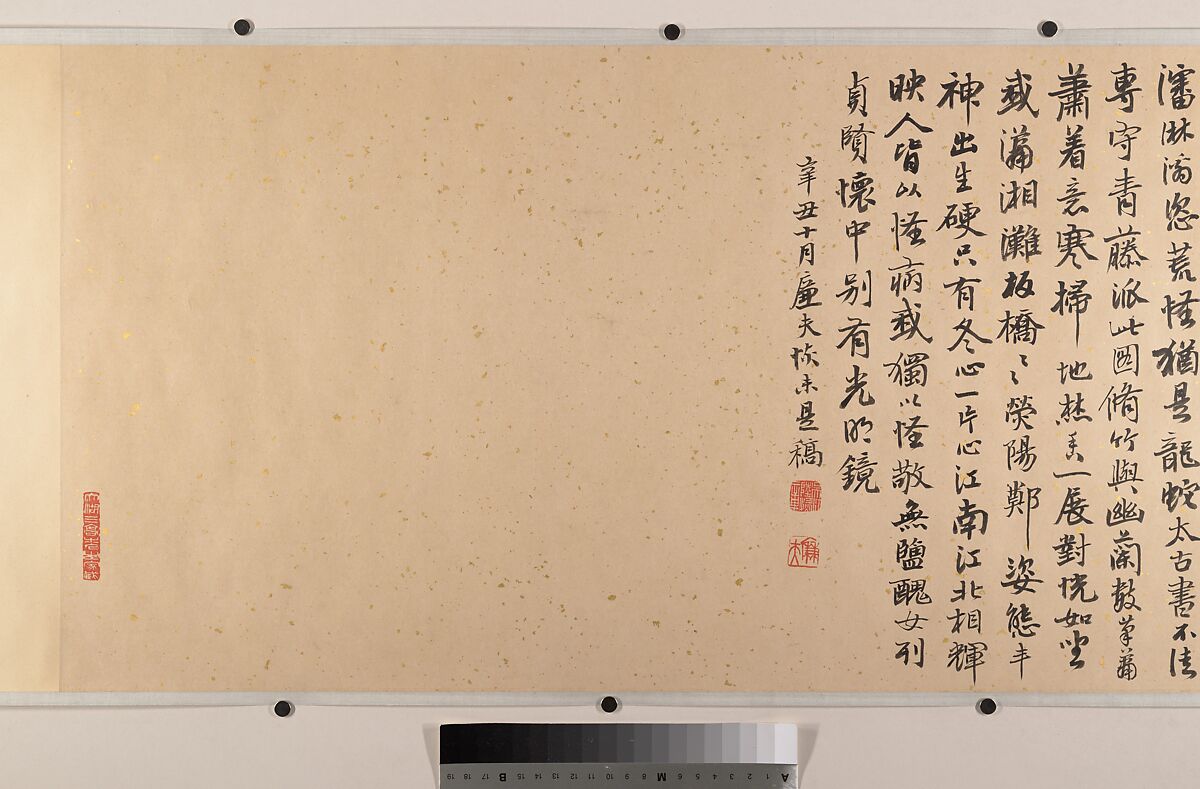 瀋淋漓恣荒怪猶是龍蛇太古書不法
專守青藤派此圖脩竹與幽蘭數筆蕭
蕭着意寒掃地焚香一展對恍如坐
我瀟湘灘板橋〻〻滎陽鄭姿態丰
神出生硬只有冬心一片心江南江北相輝
映人皆以怪病我獨以怪敬無鹽醜女列
貞賢懷中別有光明鏡
辛丑十月廉夫恢未是稿
廉夫
A 1 2 3 4 5 6 M 8 9 10 11 12 13 14 15 B 17 18 19